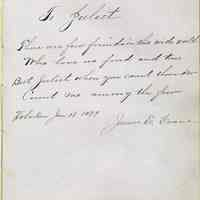 To Juliet
There are few friends in this wide world
Who love us fond and true
But Juliet when you count them o'er
Count me among the few
Hoboken Jan 18 1879
James E.